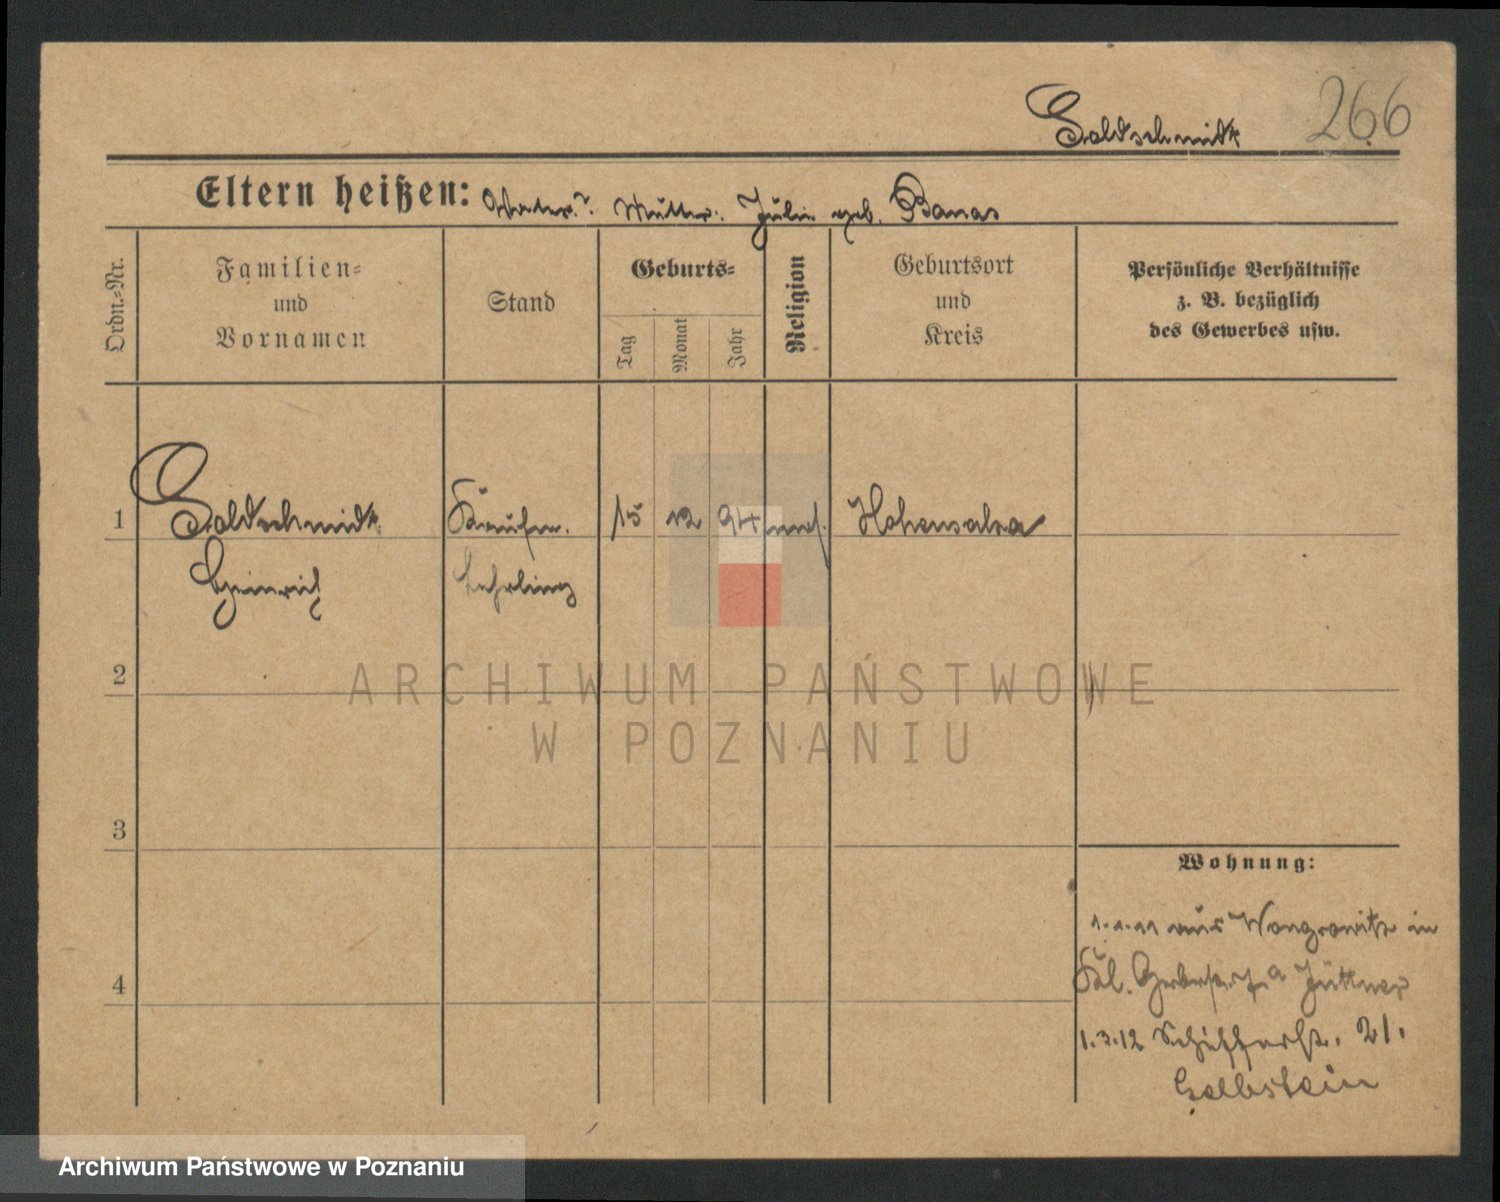 Goldschmidt 266
Eltern heißen: Vater: ? Mutter: Julie geb. Banas
Ordn.-Nr.
Familien-
und
Vornamen
Stand
Geburts-
Tag
Monat
Jahr
Religion
Geburtsort
und
Kreis
Persönliche Verhältnisse
z. B. bezüglich
des Gewerbes usw.
1 Goldschmidt Kaufm. 15 12 94 Hohensalza
Heinrich Lehrling
2
ARCHIWUM PAŃSTWOWE
W POZNANIU
3
4
Wohnung:
1.1.11 aus Wongrowitz in
Kl. Gerberstr. 7a Jüttner
1.3.12 Schifferstr. 21.
Archiwum Państwowe w Poznaniu